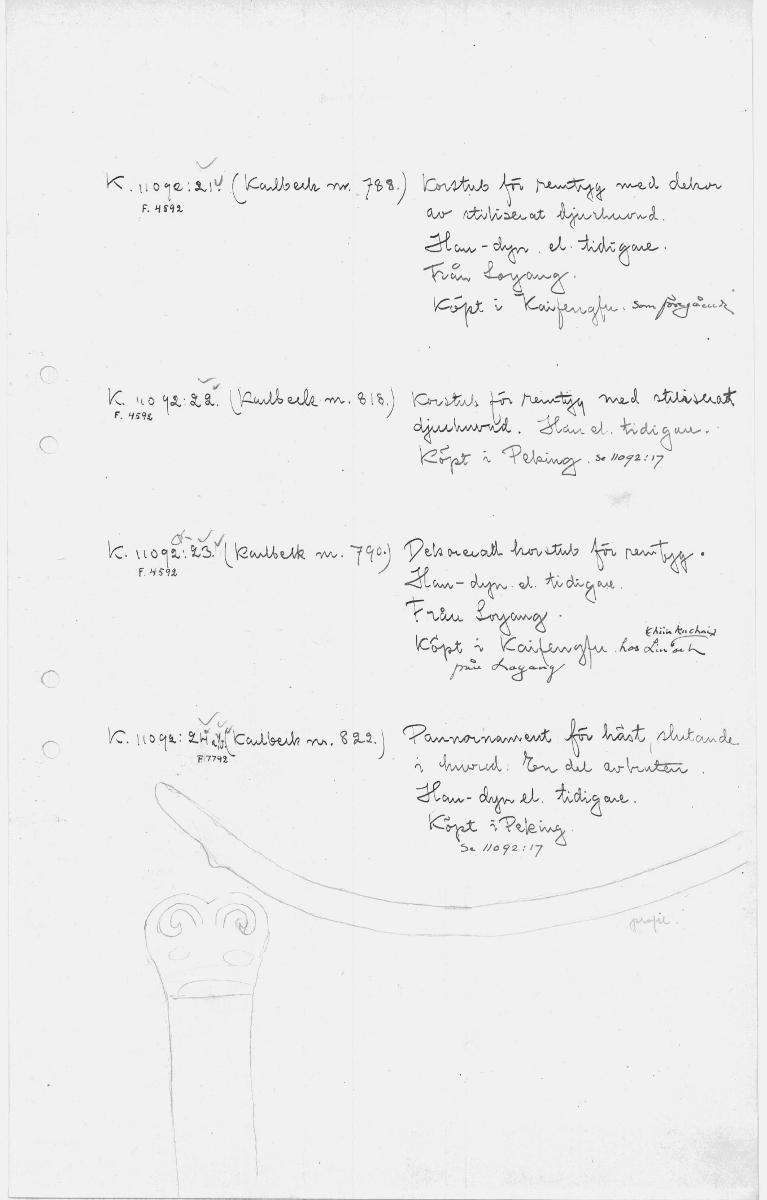 K. 11092:21. (Karlbeck nr. 788.) Korstub för remtyg med dekor
F. 4592
av stiliserat djurhuvud.
Han-dyn. el. tidigare.
Från Loyang.
Köpt i Kaifengfu. som föregående
K. 11092:22. (Karlbeck nr. 818.) Korstub för remtyg med stiliserat
F. 4592
djurhuvud. Han el. tidigare.
Köpt i Peking. se 11092:17
K. 11092:23. (Karlbeck nr. 790.) Dekorerat korstub för remtyg.
F. 4592
Han-dyn. el. tidigare.
Från Loyang.
Köpt i Kaifengfu. hos
från Loyang
K. 11092:24 (Karlbeck nr. 822.) Pannornament för häst, slutande
F 7792
i huvud. En del avbruten.
Han-dyn el. tidigare.
Köpt i Peking.
Se 11092:17
profil.